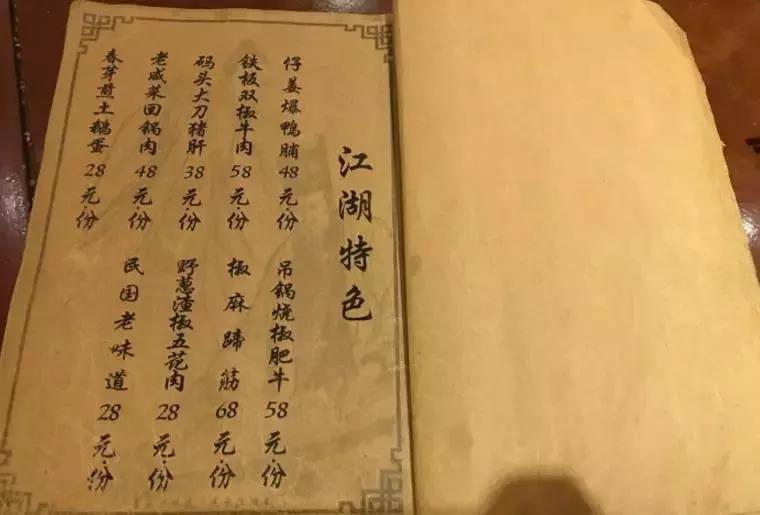 江湖特色
仔姜爆鸭脯48元·份
铁板双椒牛肉58元·份
码头大刀猪肝38元·份
老咸菜回锅肉48元·份
春芽煎土鹅蛋28元·份
吊锅烧椒肥牛58元·份
椒麻蹄筋68元·份
野葱渣椒五花肉28元·份
民国老味道28元·份